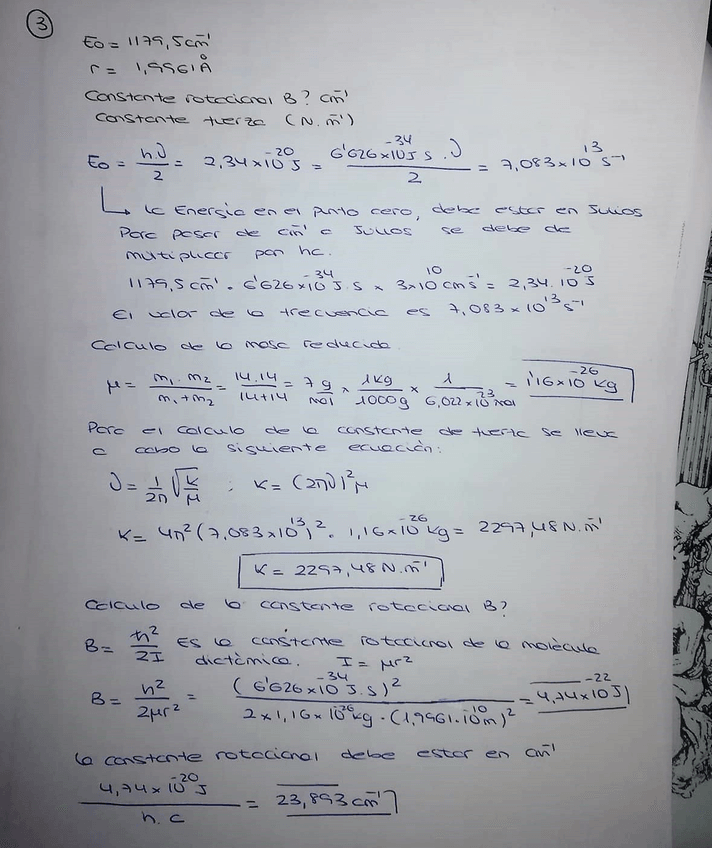 3
E0 = 1179,5 cm⁻¹
r = 1,9961 Å
Constante rotacional B? cm⁻¹
Constante fuerza (N.m⁻¹)
E0 = h.ν/2 = 2,34x10⁻²⁰ J = 6'626x10⁻³⁴ J s . ν / 2 = 7,083x10¹³ s⁻¹
↳ la Energia en el punto cero, debe estar en Julios
Para pasar de cm⁻¹ a Julios se debe de
multiplicar por hc.
1179,5 cm⁻¹ . 6'626x10⁻³⁴ J.s x 3x10¹⁰ cm s⁻¹ = 2,34.10⁻²⁰ J
El valor de la frecuencia es 7,083x10¹³ s⁻¹
Calculo de la masa reducida
μ = m₁.m₂ / m₁+m₂ = 14.14 / 14+14 = 7 g/mol x 1Kg/1000g x 1 / 6,022x10²³ mol = 1'16x10⁻²⁶ Kg
Para el calculo de la constante de fuerza se lleva
a cabo la siguiente ecuación:
ν = 1/2π √K/μ ; K = (2πν)²μ
K = 4π²(7,083x10¹³)² . 1,16x10⁻²⁶ Kg = 2297,48 N.m⁻¹
K = 2297,48 N.m⁻¹
Calculo de la constante rotacional B?
B = ħ²/2I Es la constante rotacional de la molècula
diatòmica. I = μr²
B = h²/2μr² = (6'626x10⁻³⁴ J.s)² / 2x1,16x10⁻²⁶ Kg . (1,9961.10⁻¹⁰ m)² = 4,74x10⁻²² J
la constante rotacional debe estar en cm⁻¹
4,74x10⁻²⁰ J / h.c = 23,893 cm⁻¹